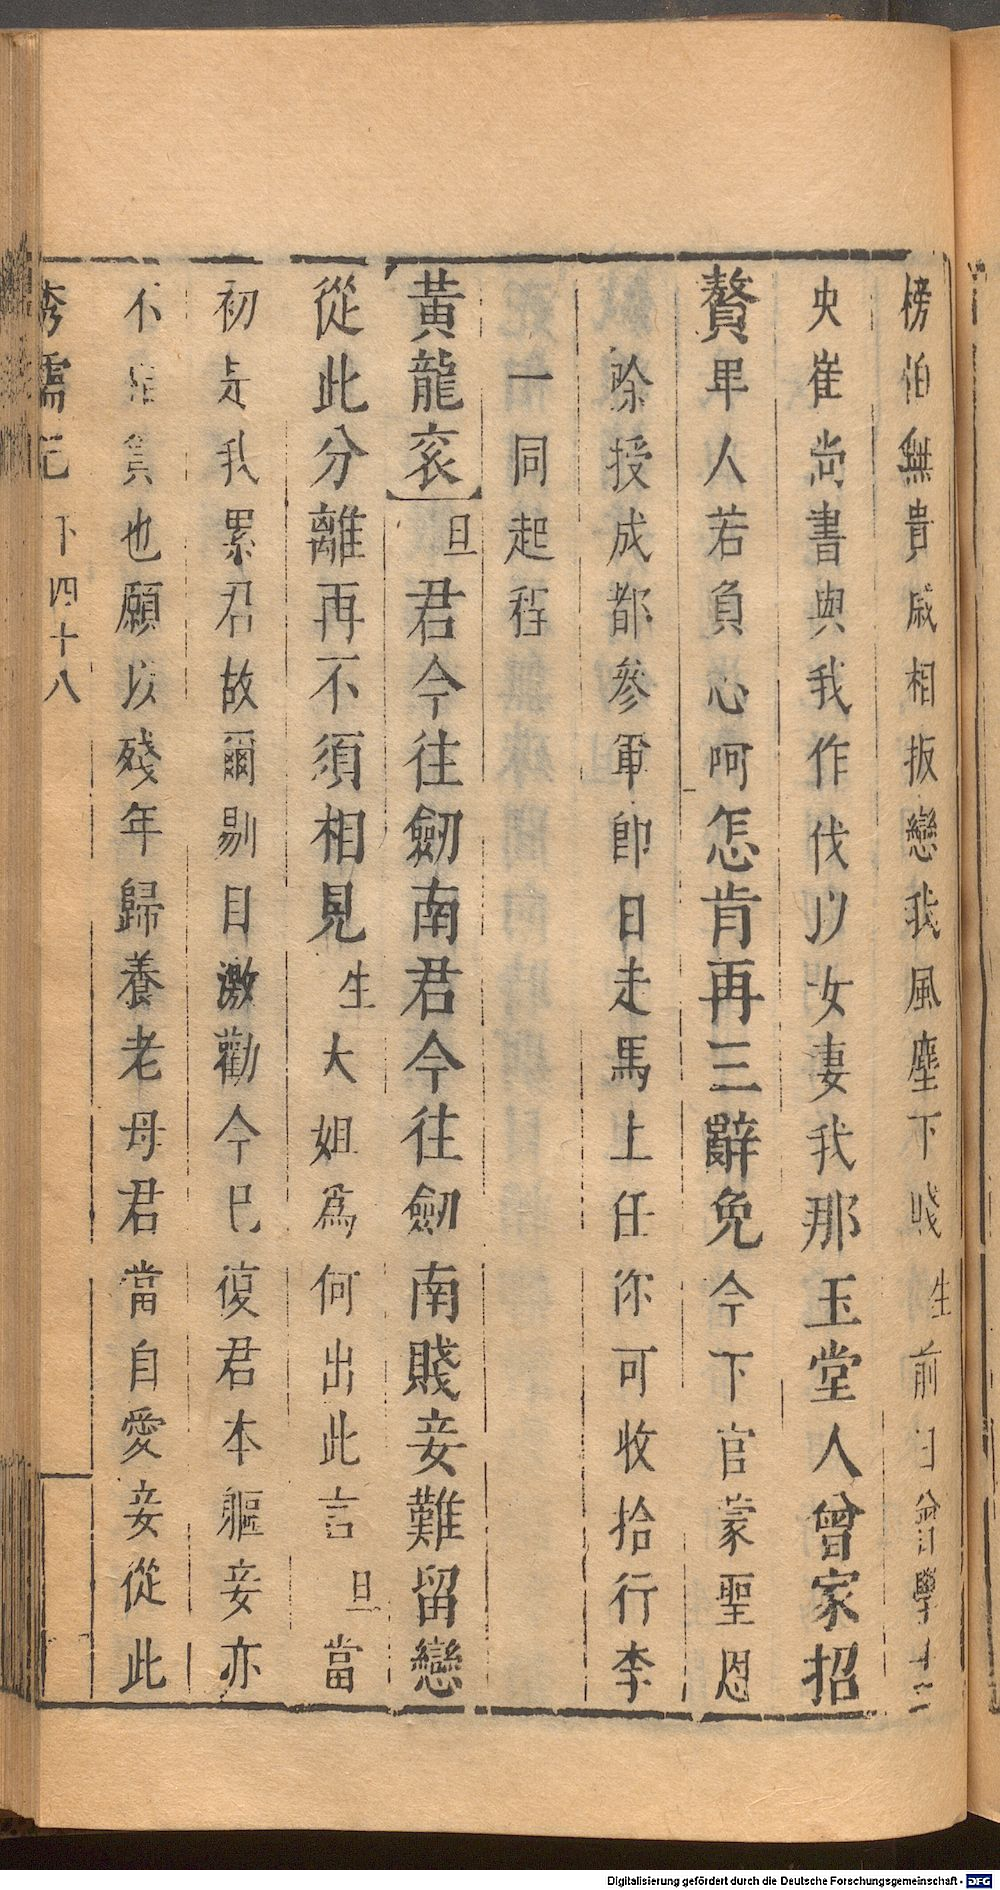 榜怕無貴戚相扳戀我風塵下賤生前日曾學士
央崔尚書與我作伐以女妻我那玉堂人曾家招
贅卑人若負心呵怎肯再三辭免今下官蒙聖恩
除授成都參軍即日走馬上任你可收拾行李
一同起程
黃龍衮旦君今往劒南君今往劒南賤妾難留戀
從此分離再不須相見生大姐為何出此言旦當
初是我累君故爾剔目激勸今已復君本軀妾亦
不負也願以殘年歸養老母君當自愛妾從此
繡襦記 下 四十八
Digitalisierung gefördert durch die Deutsche Forschungsgemeinschaft - DFG